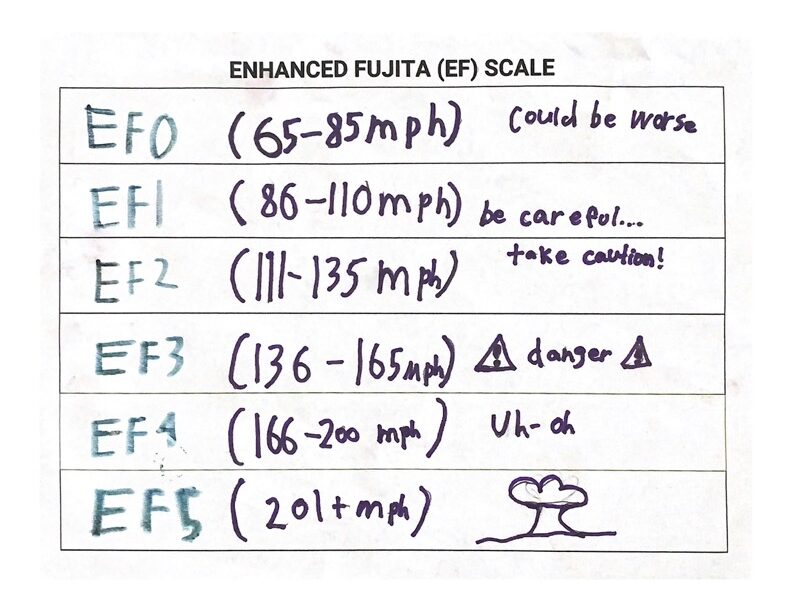 ENHANCED FUJITA (EF) SCALE
EF0 (65-85mph) Could be worse
EF1 (86-110mph) be careful...
EF2 (111-135 mph) take caution!
EF3 (136-165mph) ! danger !
EF4 (166-200 mph) Uh-oh
EF5 (201+mph)